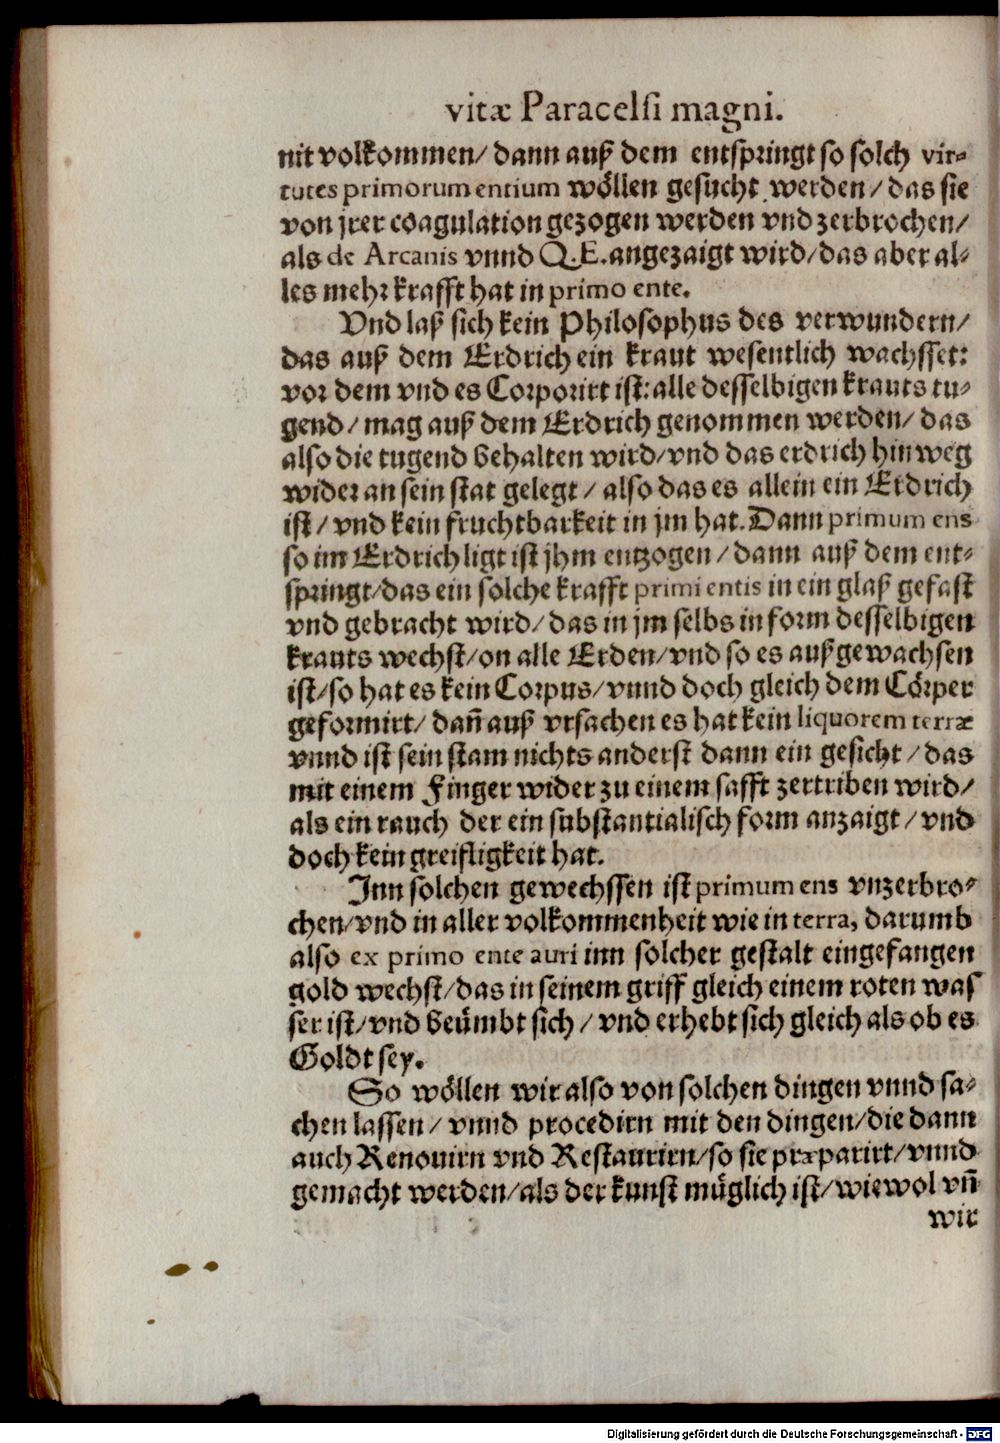 vitæ Paracelsi magni.
nit volkommen/ dann auß dem entspringt so solch vir-
tutes primorum entium wöllen gesucht werden/ das sie
von jrer coagulation gezogen werden vnd zerbrochen/
als de Arcanis vnnd Q.E. angezaigt wird/ das aber al-
les mehr krafft hat in primo ente.
Vnd laß sich kein Philosophus des verwundern/
das auß dem Erdrich ein kraut wesentlich wachsset:
vor dem vnd es Corporirt ist: alle desselbigen krauts tu-
gend/ mag auß dem Erdrich genommen werden/ das
also die tugend behalten wird/ vnd das erdrich hinweg
wider an sein stat gelegt/ also das es allein ein Erdrich
ist/ vnd kein fruchtbarkeit in jm hat. Dann primum ens
so im Erdrich ligt ist jhm entzogen/ dann auß dem ent-
springt/ das ein solche krafft primi entis in ein glaß gefast
vnd gebracht wird/ das in jm selbs in form desselbigen
krauts wechst/ on alle Erden/ vnd so es außgewachsen
ist/ so hat es kein Corpus/ vnnd doch gleich dem Cörper
geformirt/ dañ auß vrsachen es hat kein liquorem terræ
vnnd ist sein stam nichts anderst dann ein gesicht/ das
mit einem Finger wider zu einem safft zertriben wird/
als ein rauch der ein substantialisch form anzaigt/ vnd
doch kein greifligkeit hat.
Inn solchen gewechssen ist primum ens vnzerbro-
chen/ vnd in aller volkommenheit wie in terra, darumb
also ex primo ente auri inn solcher gestalt eingefangen
gold wechst/ das in seinem griff gleich einem roten was
ser ist/ vnd beümbt sich/ vnd erhebt sich gleich als ob es
Goldt sey.
So wöllen wir also von solchen dingen vnnd sa-
chen lassen/ vnnd procedirn mit den dingen/ die dann
auch Renouirn vnd Restaurirn/ so sie præparirt/ vnnd
gemacht werden/ als der kunst müglich ist/ wiewol vñ
wir
Digitalisierung gefördert durch die Deutsche Forschungsgemeinschaft - DFG